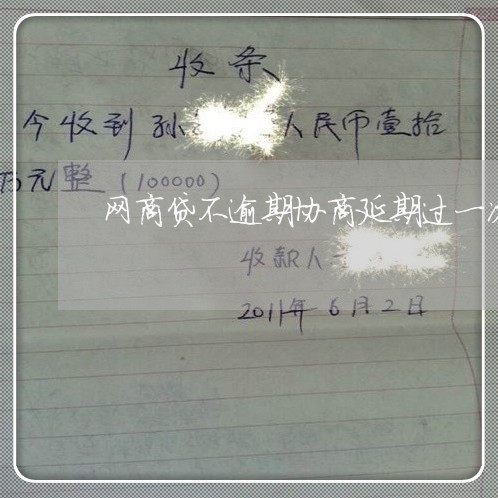 收条
今收到孙 人民币壹拾
万元整（100000）
网商贷不逾期协商延期过一次
收款人
2011年6月2日